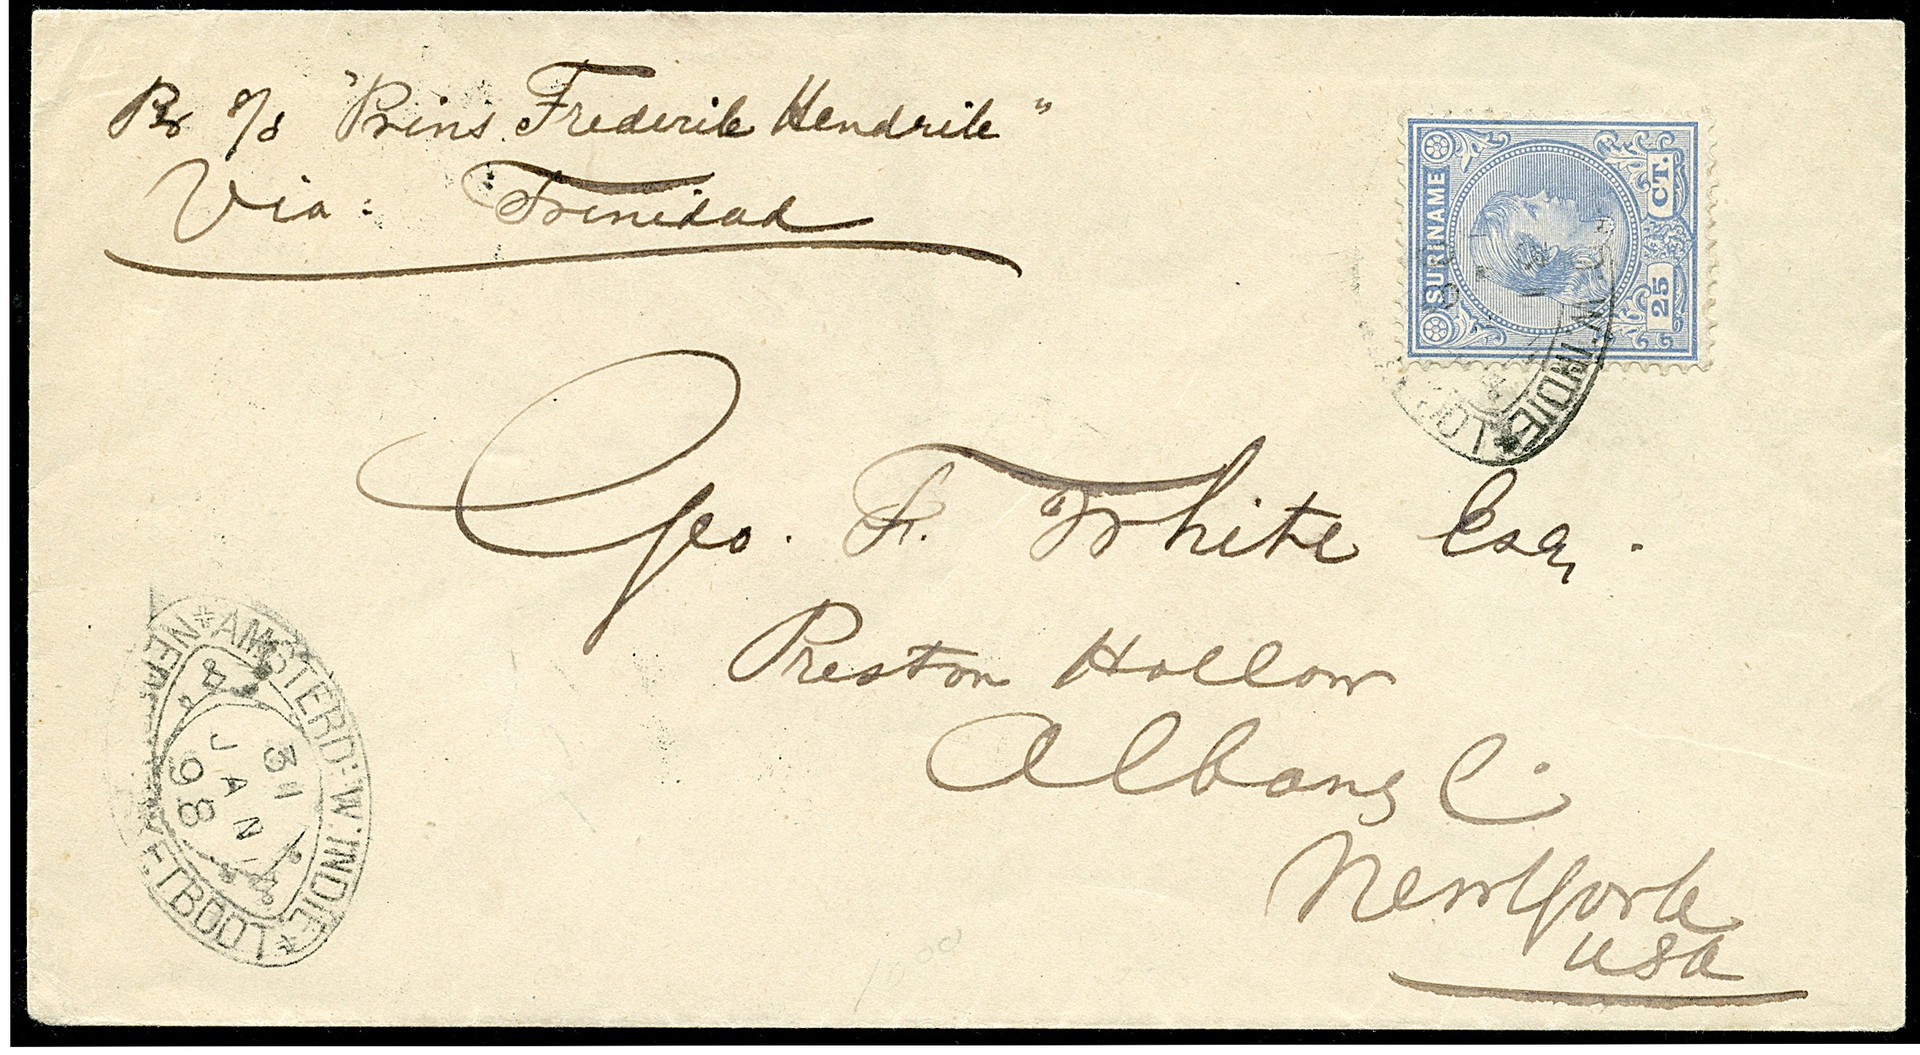 Pr S/S "Prins Frederik Hendrik"
Via: Trinidad
SURINAME
25 CT.
W. INDIE *
Geo. F. White Esq.
Preston Hollow
Albany C.
New York
USA
* AMSTERD: W. INDIE *
31
JAN
98